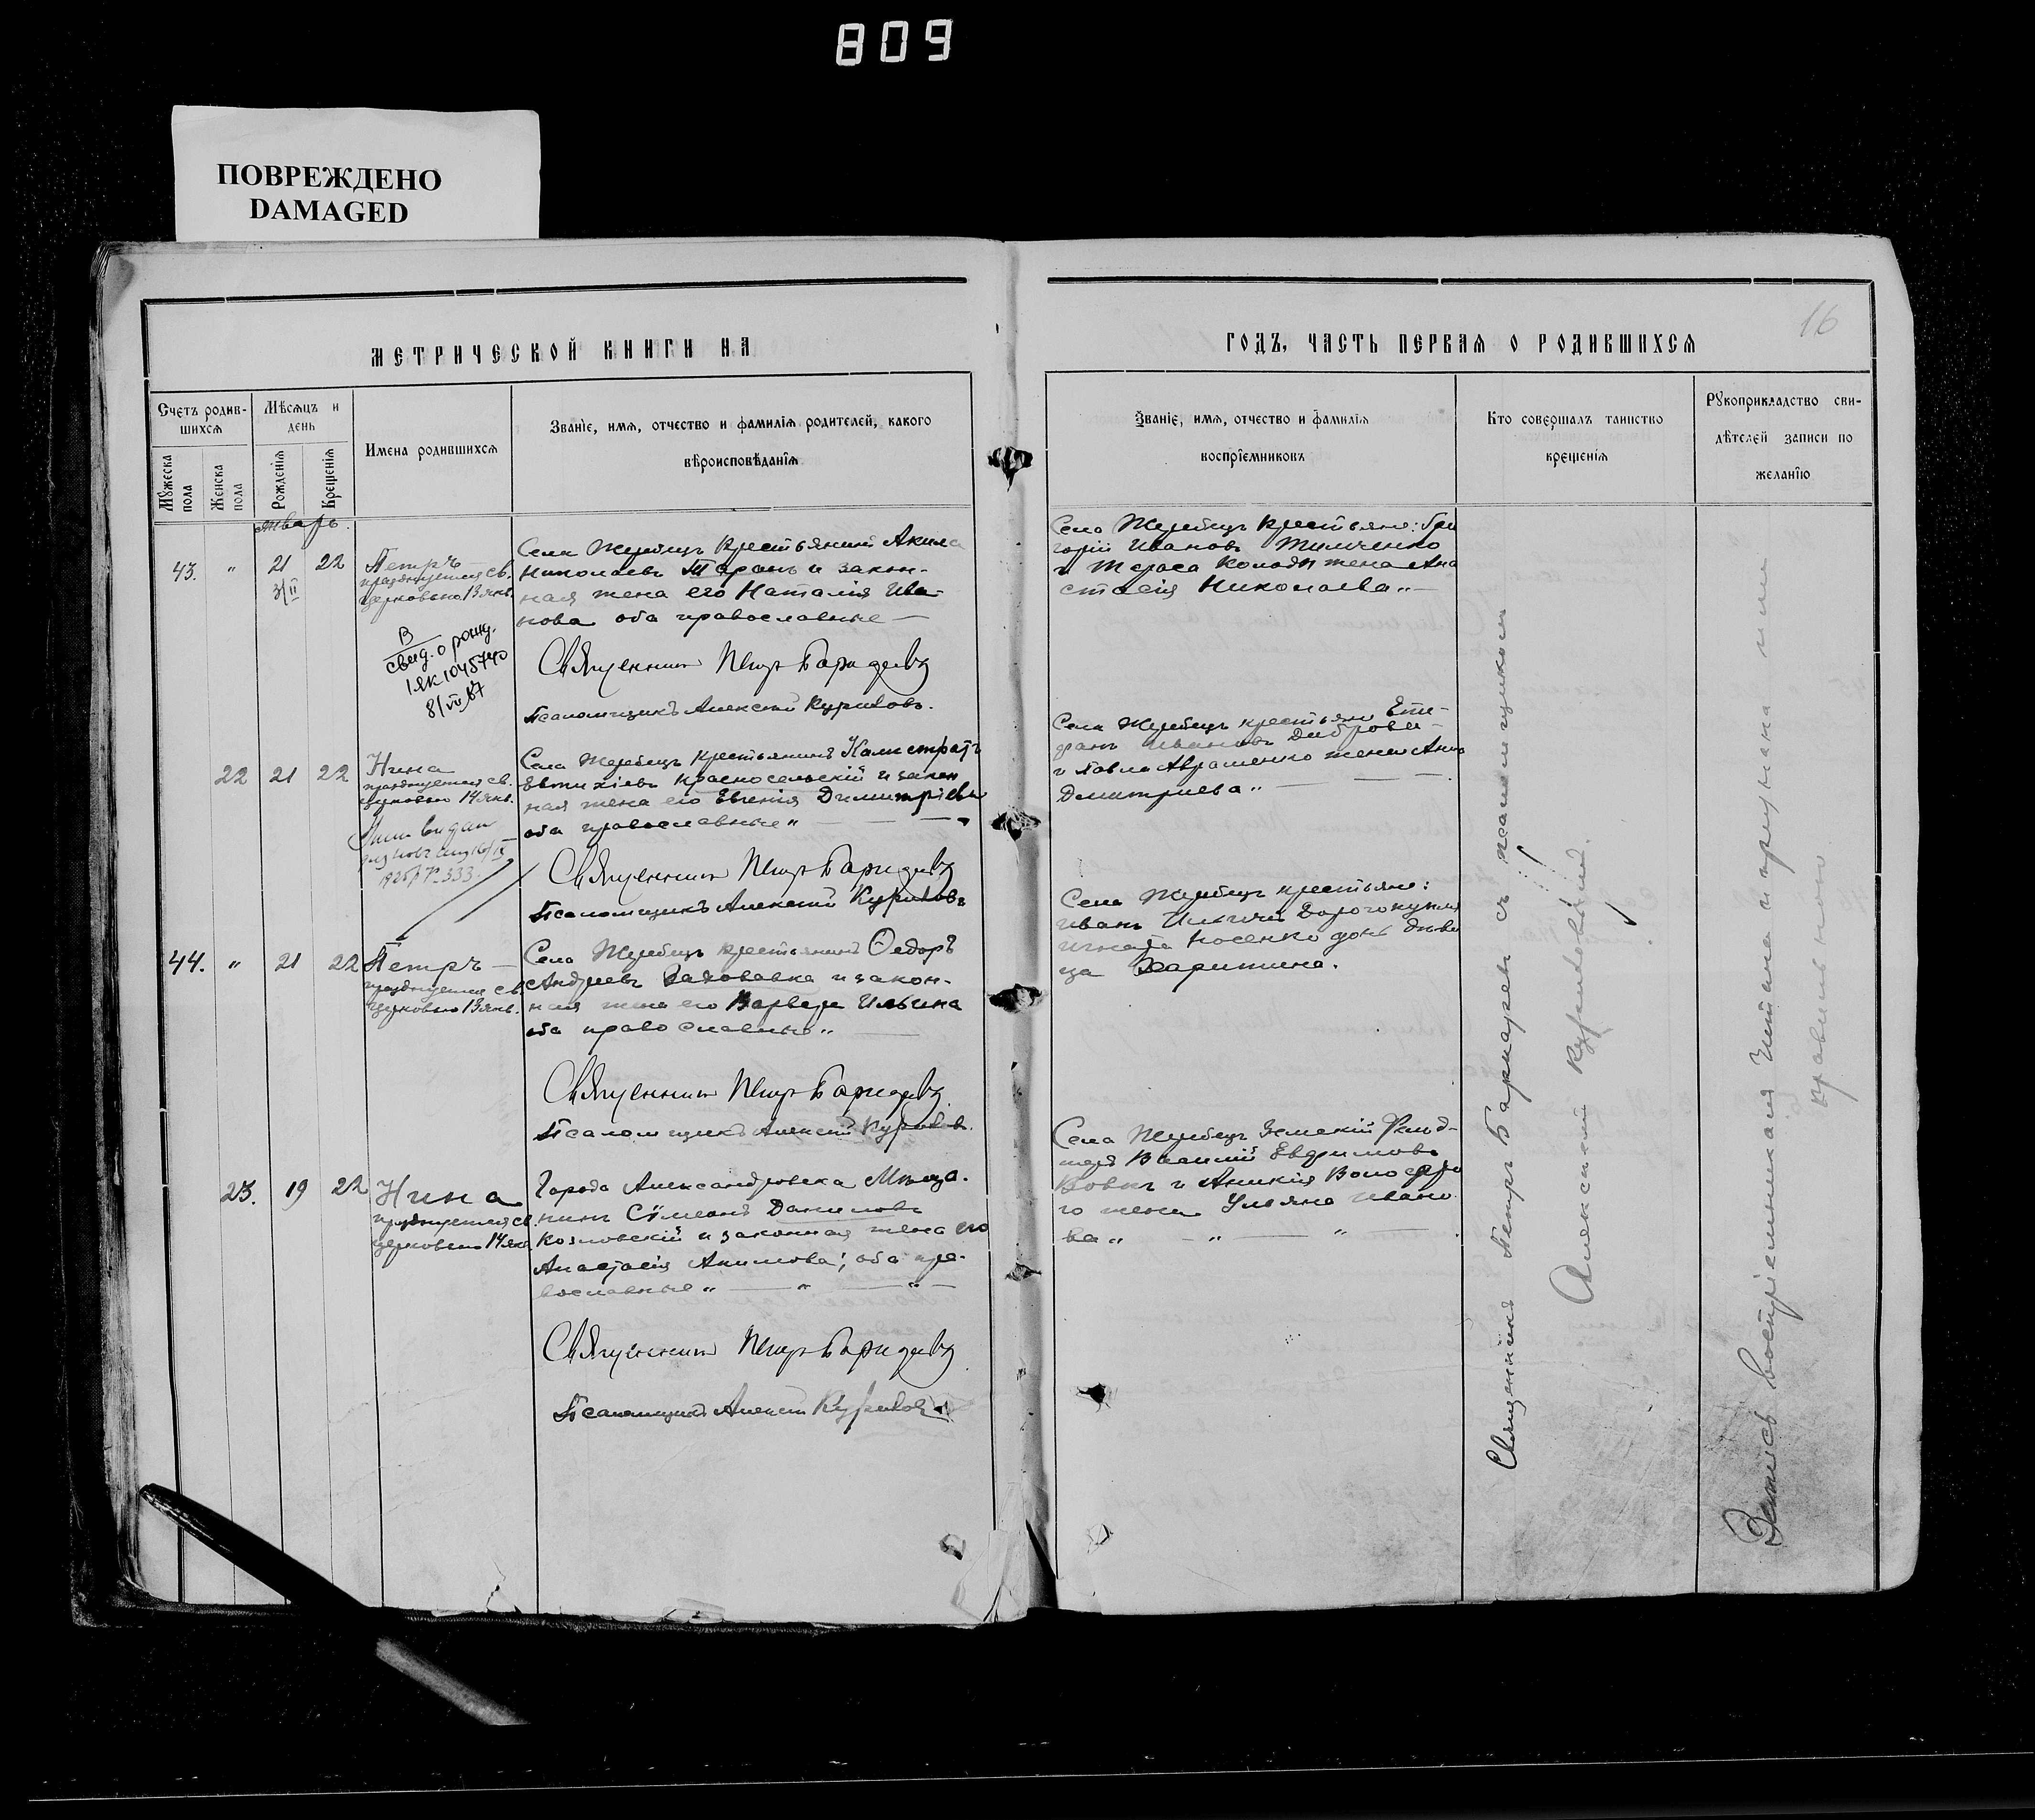 809
ПОВРЕЖДЕНО
DAMAGED
16
МЕТРИЧЕСКОЙ КНИГИ НА
ГОДЪ, ЧАСТЬ ПЕРВАЯ О РОДИВШИХСЯ
Счетъ родив-
шихся
Мѣсяцъ и
день
Мужеска
пола
Женска
пола
Рожденія
Крещенія
Имена родившихся
Званіе, имя, отчество и фамилія родителей, какого
вѣроисповѣданія
Званіе, имя, отчество и фамилія
воспріемниковъ
Кто совершалъ таинство
крещенія
Рукоприкладство сви-
дѣтелей записи по
желанію
январь.
43. " 21 22
3/II
Петръ
празднуемая св.
церковью 13 янв.
В
свид. о рожд.
1 ЯК 1045740
8/VII 87
Села Жеребецъ крестьянинъ Акила
Николаевъ Таранъ и закон-
ная жена его Наталія Ива-
нова оба православные
Священникъ Петръ
Псаломщикъ Алексій
Села Жеребецъ крестьяне: Гри
горій Ивановъ Тимченко
и Тараса жена Ана
стасія Николаева"
22 21 22
Нина
празднуемая св.
церковью 14 янв.
№ 333
Села Жеребецъ крестьянинъ Калистратъ
Евтихіевъ Красносельскій и закон
ная жена его Евгенія Димитріева
оба православные"
Священникъ Петръ
Псаломщикъ Алексій
Села Жеребецъ крестьяне
Ивановъ
и Павла Авраменко жена Анна
Димитриева"
44. " 21 22
Петръ
празднуемая св.
церковью 13 янв.
Села Жеребецъ крестьянинъ Ѳедоръ
Андреевъ и закон-
ная жена его Варвара Ильина
оба православные"
Священникъ Петръ
Псаломщикъ Алексій
Села Жеребецъ крестьяне:
Иванъ
Игната Носенко дочь дѣви
ца Харитина.
23. 19 22
Нина
празднуемая св.
церковью 14 янв
Города Александровска Мѣща-
нинъ Сѵмеонъ Даниловъ
Козловскій и законная жена его
Анастасія Акимова; оба пра-
вославные"
Священникъ Петръ
Псаломщикъ Алексій
Села Жеребецъ Земскій Фельд-
шеръ Василій Евфимовъ
Вовкъ и
го жена Ульяна Ивано
ва"
Священникъ Петръ съ псаломщикомъ
Алексіемъ
Запись воспріемникамъ читана и признана ими
правильною.